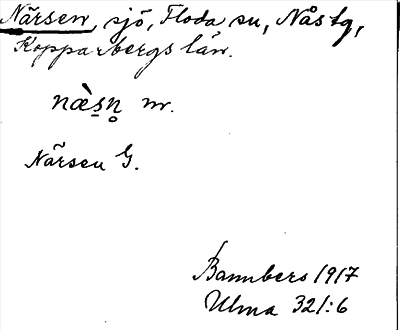 Närsen, sjö, Floda sn, Nås tg,
Kopparbergs län.
næ̀s̲n̥ m.
Närsen G.
Bannbers 1917
Ulma 321:6